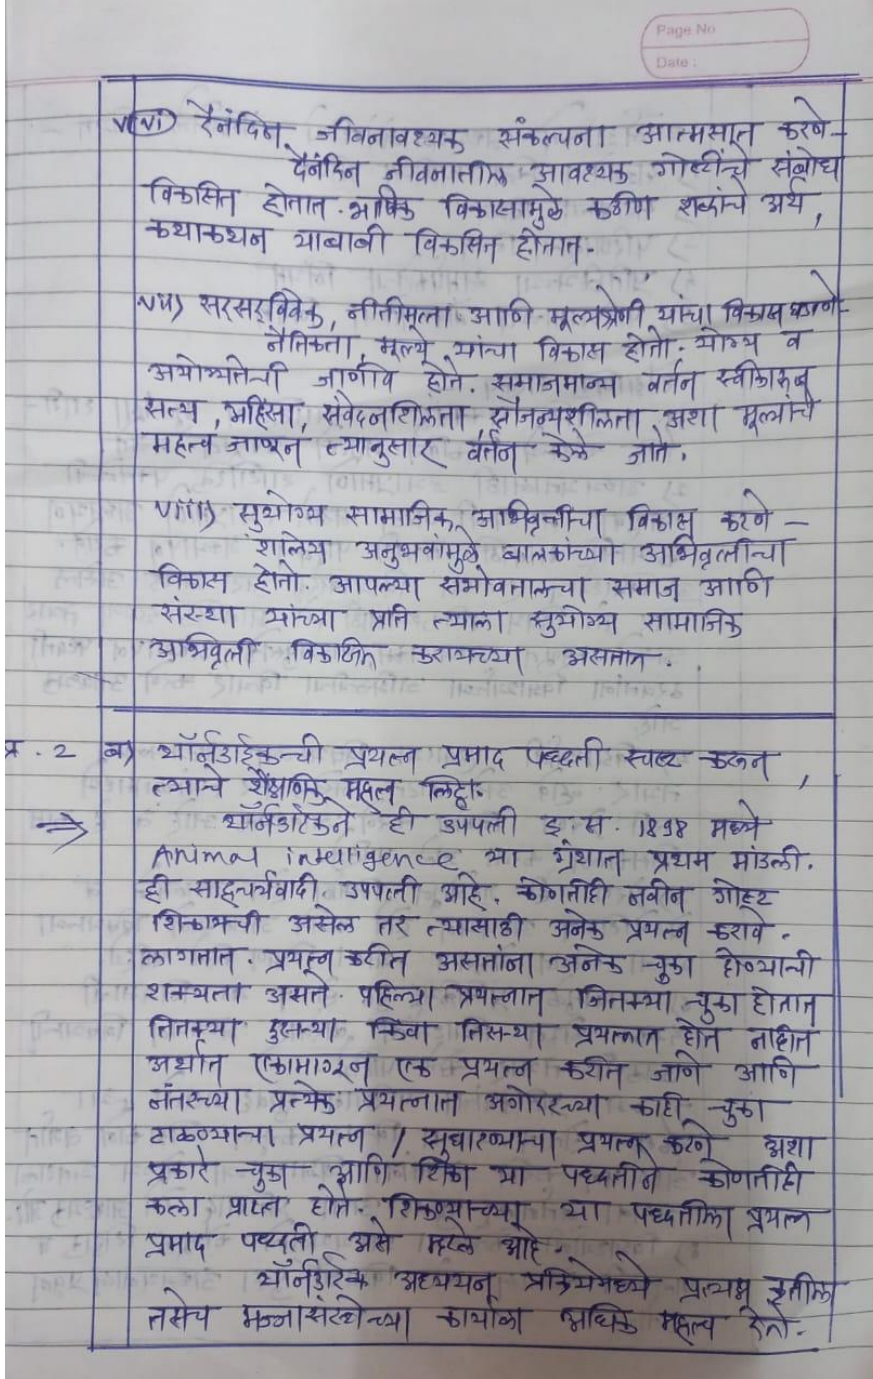 Page No
Date :
vi) दैनंदिन जीवनावश्यक संकल्पना आत्मसात करणे -
दैनंदिन जीवनातील आवश्यक गोष्टींचे संबोध
विकसित होतात. भाषिक विकासामुळे कठीण शब्दांचे अर्थ,
कथाकथन याबाबी विकसित होतात.
vii) सरसद्विवेक, नीतीमूल्य आणि मूल्यश्रेणी यांचा विकास करणे -
नैतिकता, मूल्ये यांचा विकास होतो. योग्य व
अयोग्यतेची जाणीव होते. समाजमान्य वर्तन स्वीकारून
सत्य, अहिंसा, संवेदनशिलता, सौजन्यशीलता अशा मूल्यांचे
महत्व जाणून त्यानुसार वर्तन केले जाते.
viii) सुयोग्य सामाजिक अभिवृत्तीचा विकास करणे -
शालेय अनुभवांमुळे बालकांच्या अभिवृत्तीचा
विकास होतो. आपल्या सभोवतालचा समाज आणि
संस्था यांच्या प्रति त्याला सुयोग्य सामाजिक
अभिवृत्ती विकसित करायच्या असतात.
प्र. 2 ब) थॉर्नडाईकची प्रयत्न प्रमाद पध्दती स्पष्ट करून,
त्याचे शैक्षणिक महत्व लिहा.
⇒ थॉर्नडाईकने ही उपपत्ती इ.स. 1898 मध्ये
Animal intelligence या ग्रंथात प्रथम मांडली.
ही साहचर्यवादी उपपत्ती आहे. कोणतीही नवीन गोष्ट
शिकायची असेल तर त्यासाठी अनेक प्रयत्न करावे
लागतात. प्रयत्न करीत असतांना अनेक चुका होण्याची
शक्यता असते. पहिल्या प्रयत्नात जितक्या चुका होतात
तितक्या दुसऱ्या किंवा तिसऱ्या प्रयत्नात होत नाहीत
अर्थात एकामागून एक प्रयत्न करीत जाणे आणि
नंतरच्या प्रत्येक प्रयत्नात अगोदरच्या काही चुका
टाळण्याचा प्रयत्न / सुधारण्याचा प्रयत्न करणे अशा
प्रकारे चुका आणि शिका या पध्दतीने कोणतीही
कला प्राप्त होते. शिकण्याच्या या पध्दतीला प्रयत्न
प्रमाद पध्दती असे म्हटले आहे.
थॉर्नडाईक अध्ययन प्रक्रियेमध्ये प्रत्यक्ष कृतीला
तसेच मज्जासंस्थेच्या कार्याला अधिक महत्व देतो.